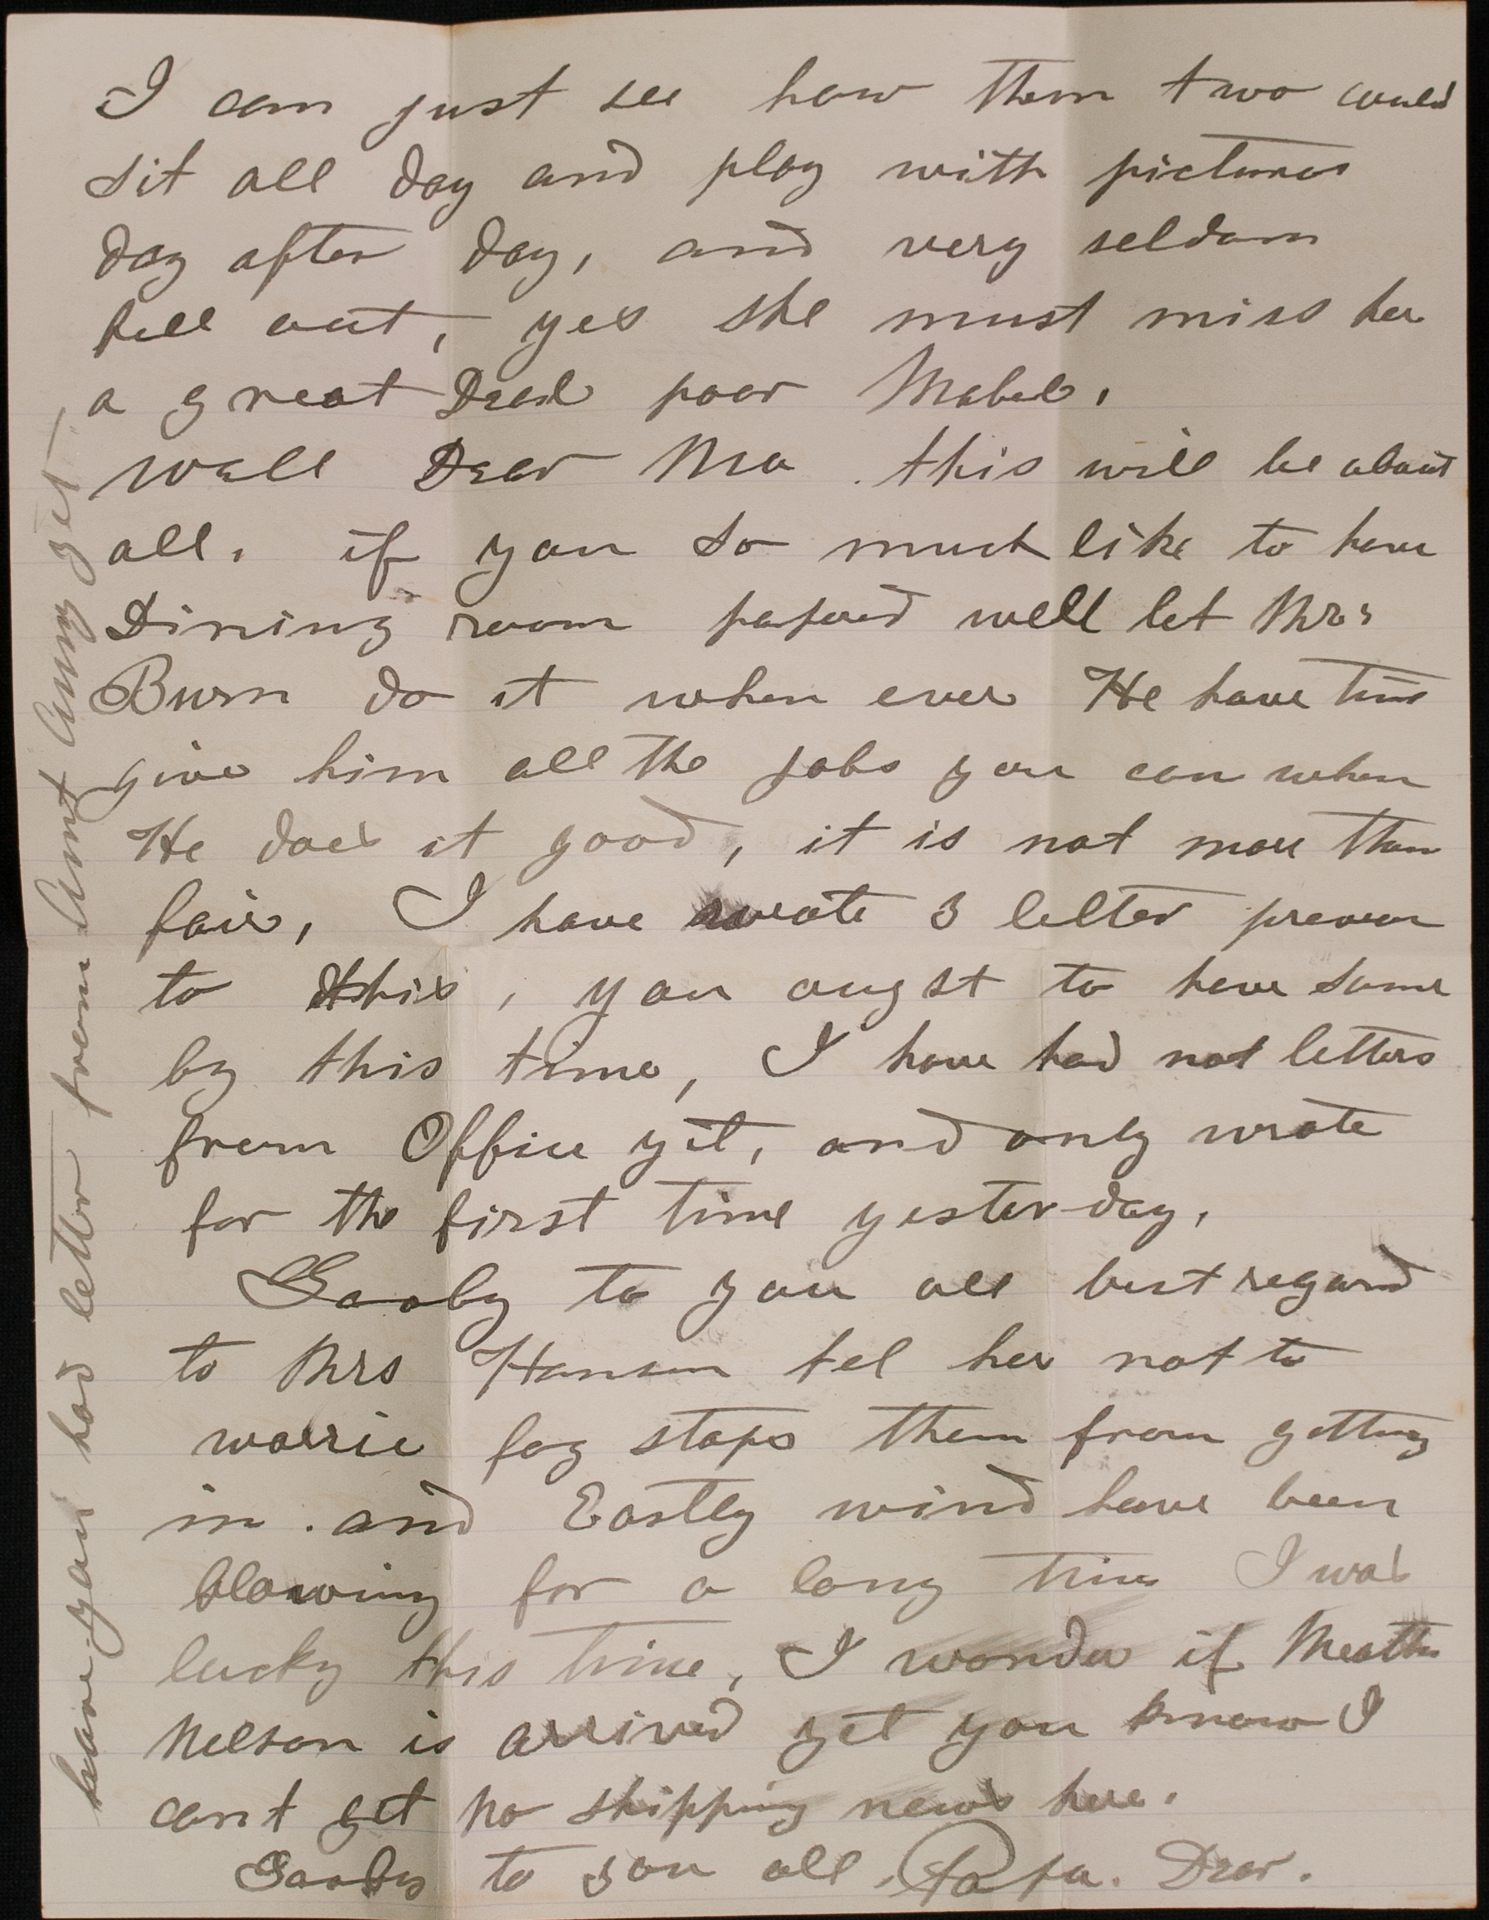 I can just see how them two could
sit all day and play with pictures
day after day, and very seldom
fell out, yes she must miss her
a great Deal poor Mabel.
well Dear Ma this will be about
all. if you so much like to have
Dining room papered well let Mrs
Burn do it when ever He have time
give him all the jobs you can when
He does it good, it is not more than
fair, I have wrote 3 letter
to this, you ougst to have some
by this time, I have had not letters
from Office yet, and only wrote
for the first time yester-day.
Gooby to you all best regard
to Mrs Hansen tel her not to
worrie fog stops them from getting
in. and Eastly wind have been
blowing for a long time I was
lucky this time, I wonder if
Nelson is arrived yet you know I
cant get no shipping news here.
Gooby to you all. Papa. Dear.
have you had letter from Aunt Anny yet